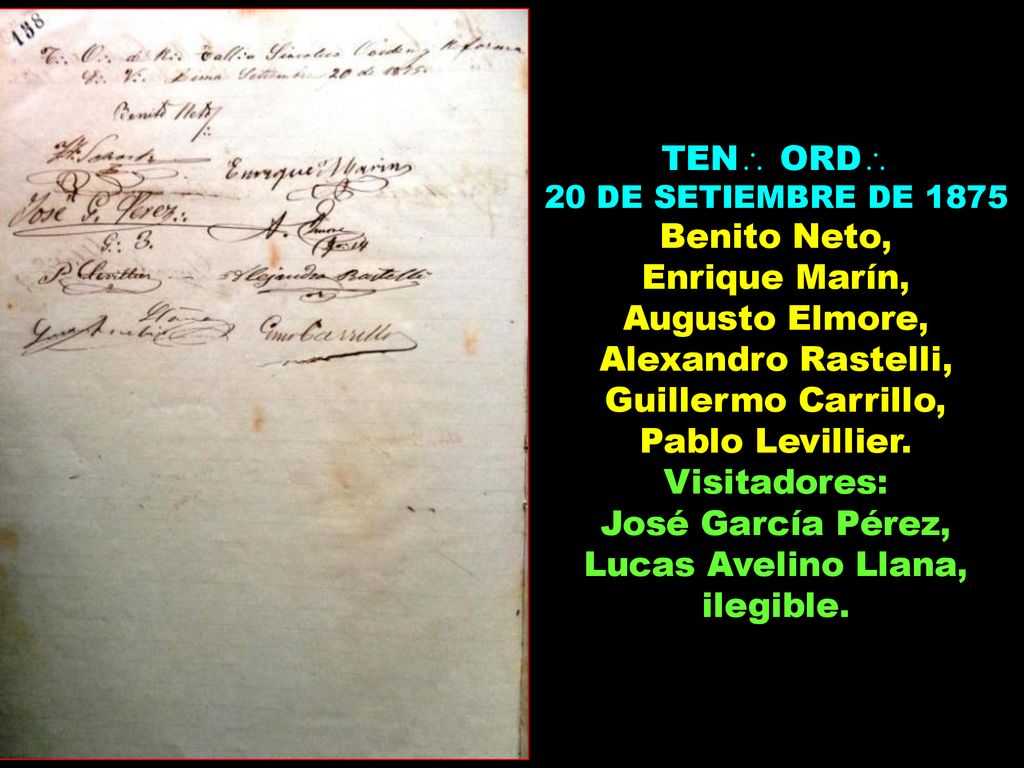 138
T∴ O∴ de
V∴ Lima Setiembre 20 de 1875
Benito Neto
Enrique Marin
José G. Perez∴
A. Elmore
G∴ 3.
P. Levillier
Alejandro Rastelli
Llana
Gmo Carrillo
TEN∴ ORD∴
20 DE SETIEMBRE DE 1875
Benito Neto,
Enrique Marín,
Augusto Elmore,
Alexandro Rastelli,
Guillermo Carrillo,
Pablo Levillier.
Visitadores:
José García Pérez,
Lucas Avelino Llana,
ilegible.